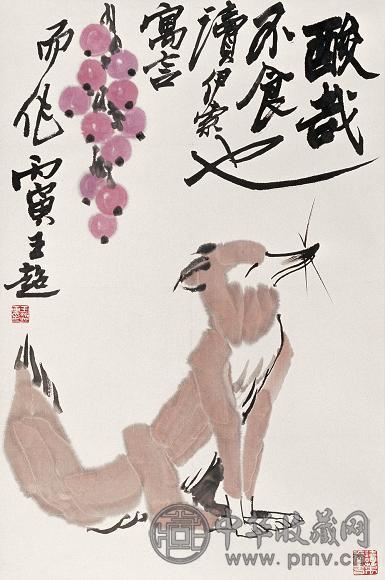 酸哉
不食也
讀伊索
寓言
而作丙寅王超
中华收藏网
www.pmv.cn